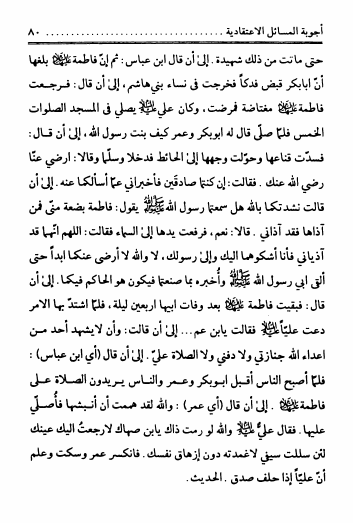 أجوبة المسائل الاعتقادية ........................................ ٨٠
حتى ماتت من ذلك شهيدة . إلىٰ أن قال ابن عباس : ثم إنّ فاطمة عليها السلام بلغها
أنّ أبابكر قبض فدكاً فخرجت في نساء بني هاشم ، إلىٰ أن قال : فرجعت
فاطمة عليها السلام مغتاضة فمرضت ، وكان علي عليه السلام يصلي في المسجد الصلوات
الخمس فلمّا صلّى قال له ابوبكر وعمر كيف بنت رسول الله ، إلىٰ أن قال :
فسدّت قناعها وحوّلت وجهها إلىٰ الحائط فدخلا وسلّما وقالا : ارضي عنّا
رضي الله عنك . فقالت : إن كنتما صادقَين فأخبراني عمّا أسألكما عنه . إلىٰ أن
قالت نشدتكما بالله هل سمعتما رسول الله ﷺ يقول : فاطمة بضعة منّي فمن
آذاها فقد آذاني . قالا : نعم ، فرفعت يدها إلىٰ السماء فقالت : اللهم انّهما قد
آذياني فأنا أشكوهما اليك وإلىٰ رسولك ، لا والله لا أرضى عنكما ابداً حتى
ألقى أبي رسول الله ﷺ وأُخبره بما صنعتما فيكون هو الحاكم فيكما . إلىٰ أن
قال : فبقيت فاطمة عليها السلام بعد وفات ابيها اربعين ليلة ، فلمّا اشتدّ بها الامر
دعت عليّاً عليه السلام فقالت يابن عم ... إلىٰ أن قالت : وأن لايشهد أحد من
اعداء الله جنازتي ولا دفني ولا الصلاة عليّ . إلىٰ أن قال (أي ابن عباس) :
فلمّا أصبح الناس أقبل ابوبكر وعمر والناس يريدون الصلاة على
فاطمة عليها السلام . إلىٰ أن قال (أي عمر) : والله لقد هممت أن أنبشها فأُصلّي
عليها . فقال عليٌّ عليه السلام والله لو رمت ذاك يابن صهاك لارجعتُ اليك عينك
لئن سللت سيفي لاغمدته دون إزهاق نفسك . فانكسر عمر وسكت وعلم
أنّ عليّاً إذا حلف صدق . الحديث .